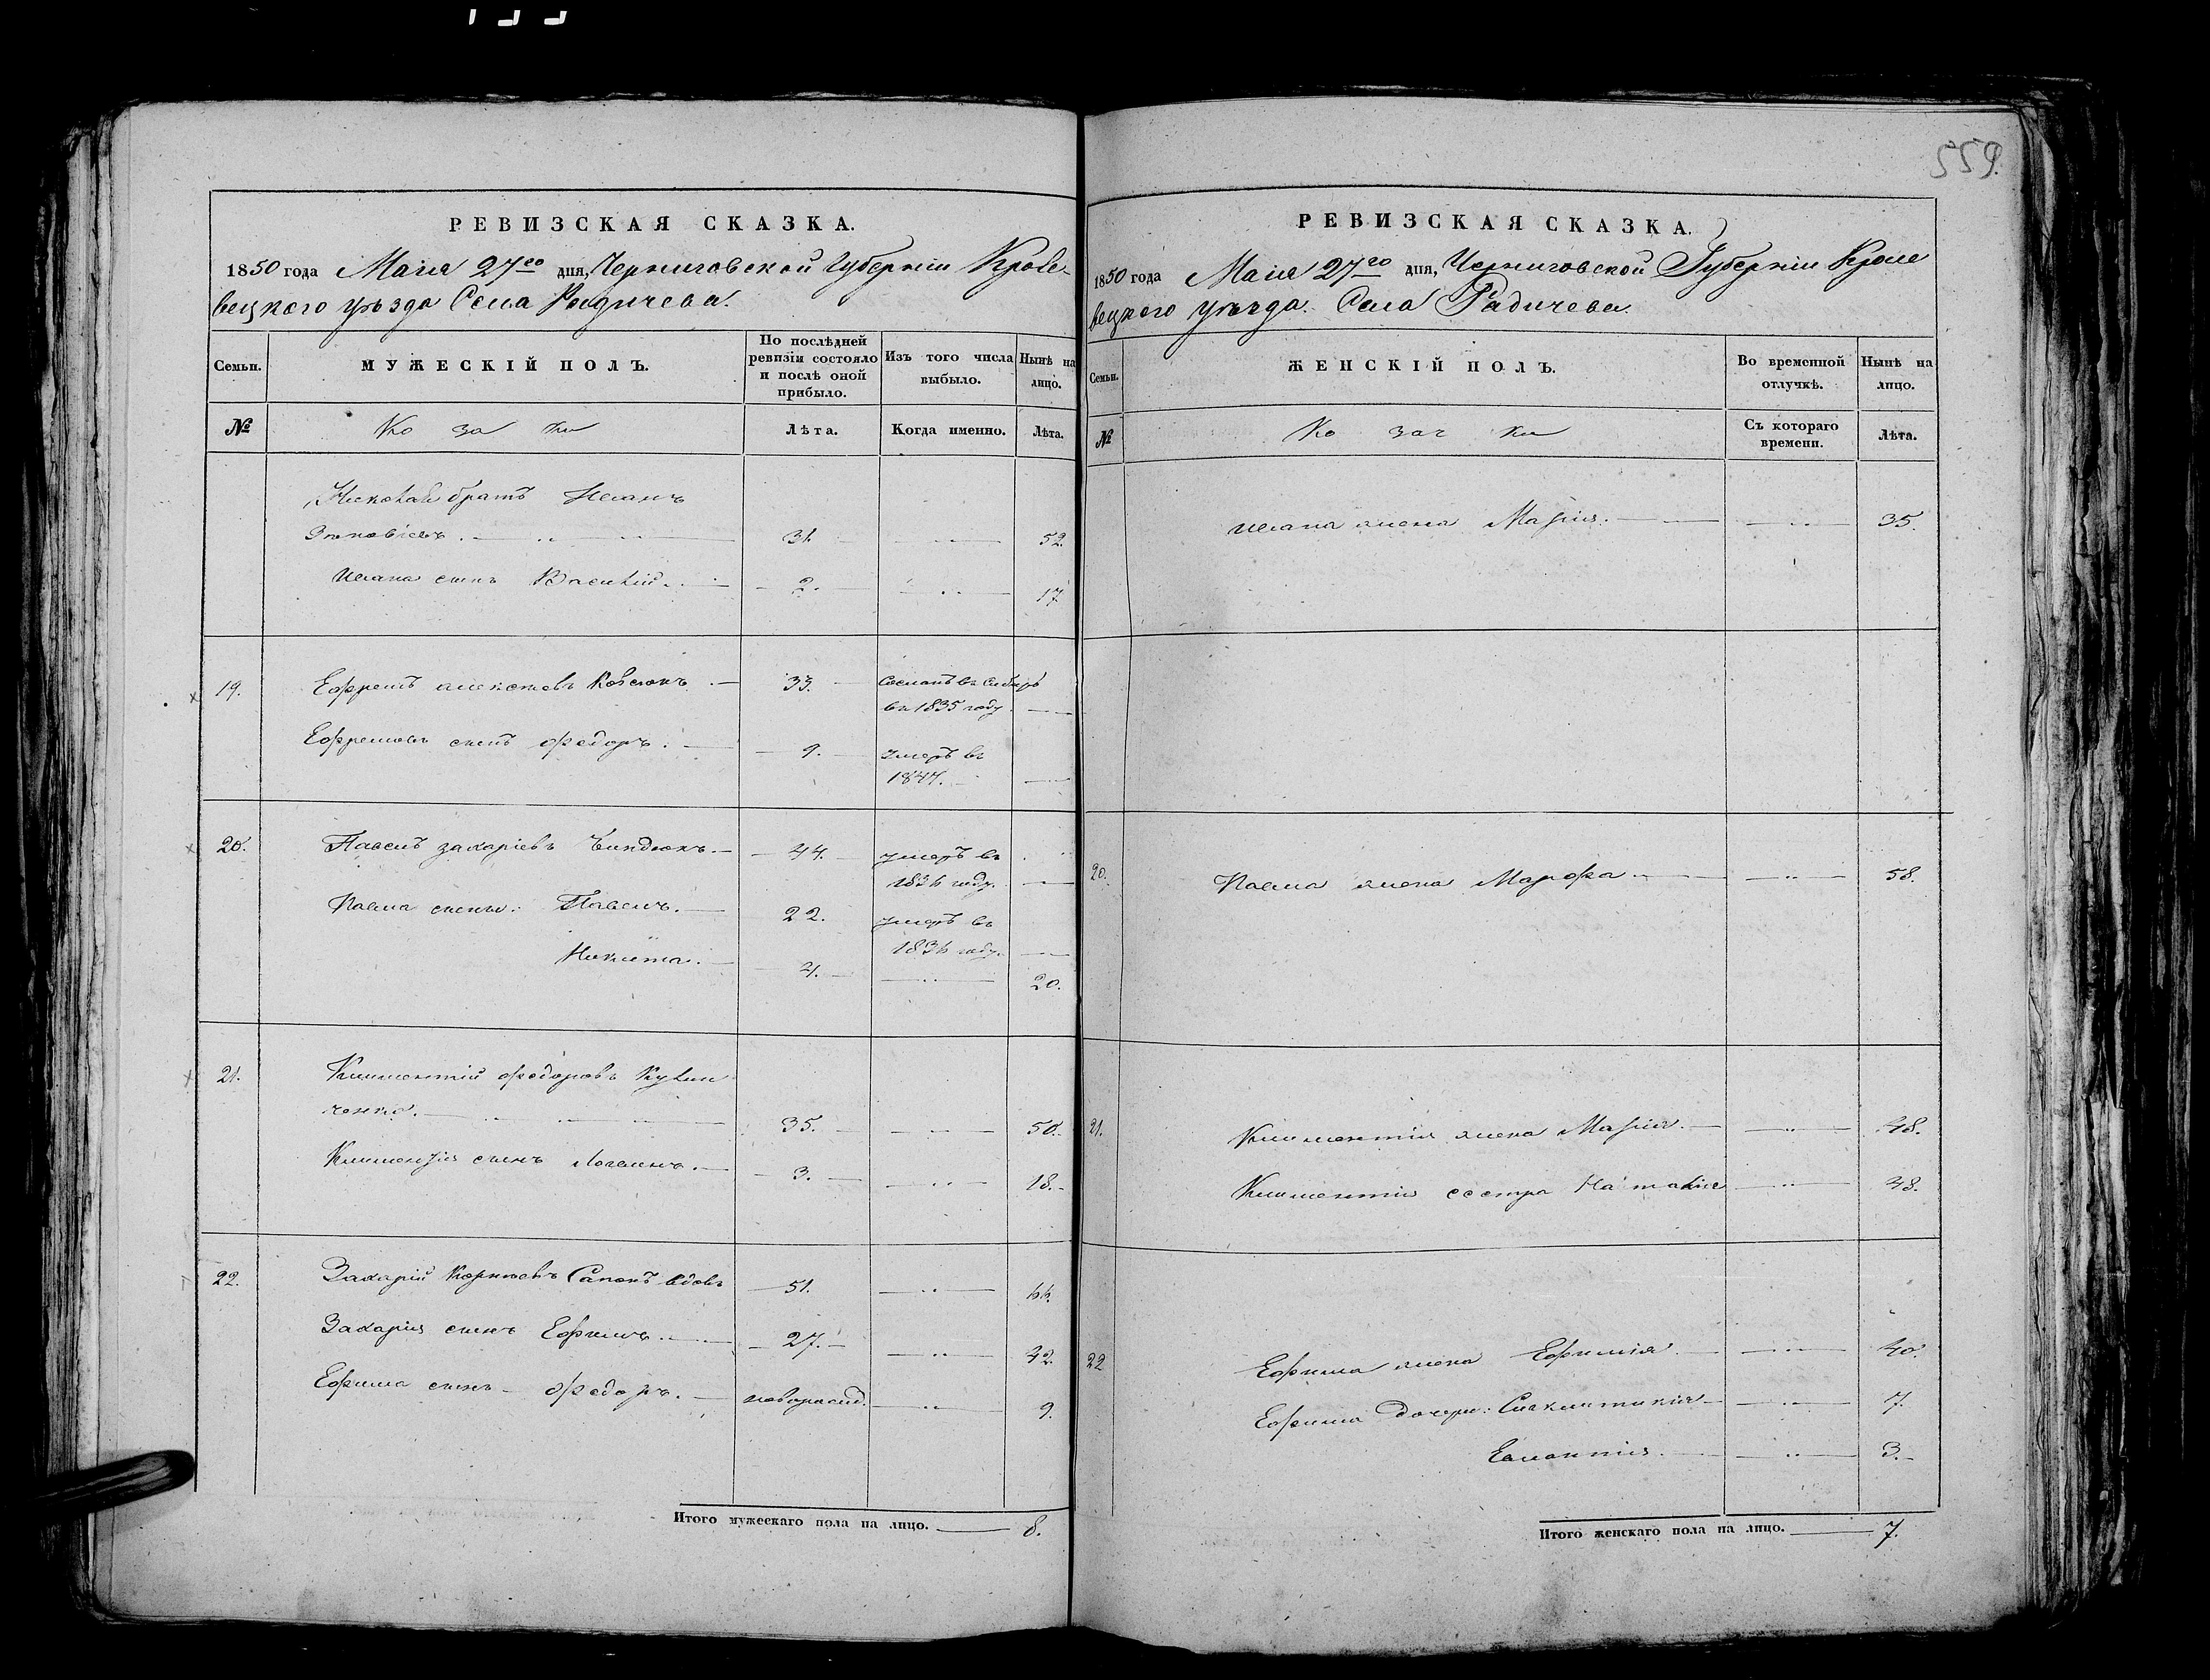 559.
РЕВИЗСКАЯ СКАЗКА.
1850 года Маія 27го дня, Черниговской Губерніи Кроле-
вецкого уѣзда Села Радичева.
Семьи. МУЖЕСКІЙ ПОЛЪ. По послѣдней ревизіи состояло и послѣ оной прибыло. Изъ того числа выбыло. Нынѣ на лицо.
№ Козаки Лѣта. Когда именно. Лѣта.
братъ
31. 52.
сынъ Василій. 2. 17
19. Ефремъ 33. Сосланъ въ Сибирь
въ 1835 году.
Ефремовъ сынъ Федоръ. 9. умеръ въ
1847.
20. Павелъ Захаріевъ 44. умеръ въ
1836 году.
Павла сыны: Павелъ. 22. умеръ въ
1836 году.
Никита. 4. 20.
21. Климентій Федоровъ Кули
ченко. 35. 50.
Климентія сынъ Логвинъ. 3. 18.
22. Захарій Корнѣевъ Сапонъ вдовъ 51. 66.
Захарія сынъ Ефимъ. 27. 42.
Ефима сынъ Федоръ. новорожд. 9.
Итого мужескаго пола на лицо. 8.
РЕВИЗСКАЯ СКАЗКА.
1850 года Маія 27го дня, Черниговской Губерніи Кроле
вецкого уѣзда. Села Радичева.
Семьи. ЖЕНСКІЙ ПОЛЪ. Во временной отлучкѣ. Нынѣ на лицо.
№ Козачки Съ котораго времени. Лѣта.
жена Марія. 35.
20. Павла жена Марфа. 58.
21. Климентія жена Марія. 48.
Климентія сестра Наталія 48.
22 Ефима жена Ефимія. 40.
Ефима дочери: Синклитикія 7.
3.
Итого женскаго пола на лицо. 7.